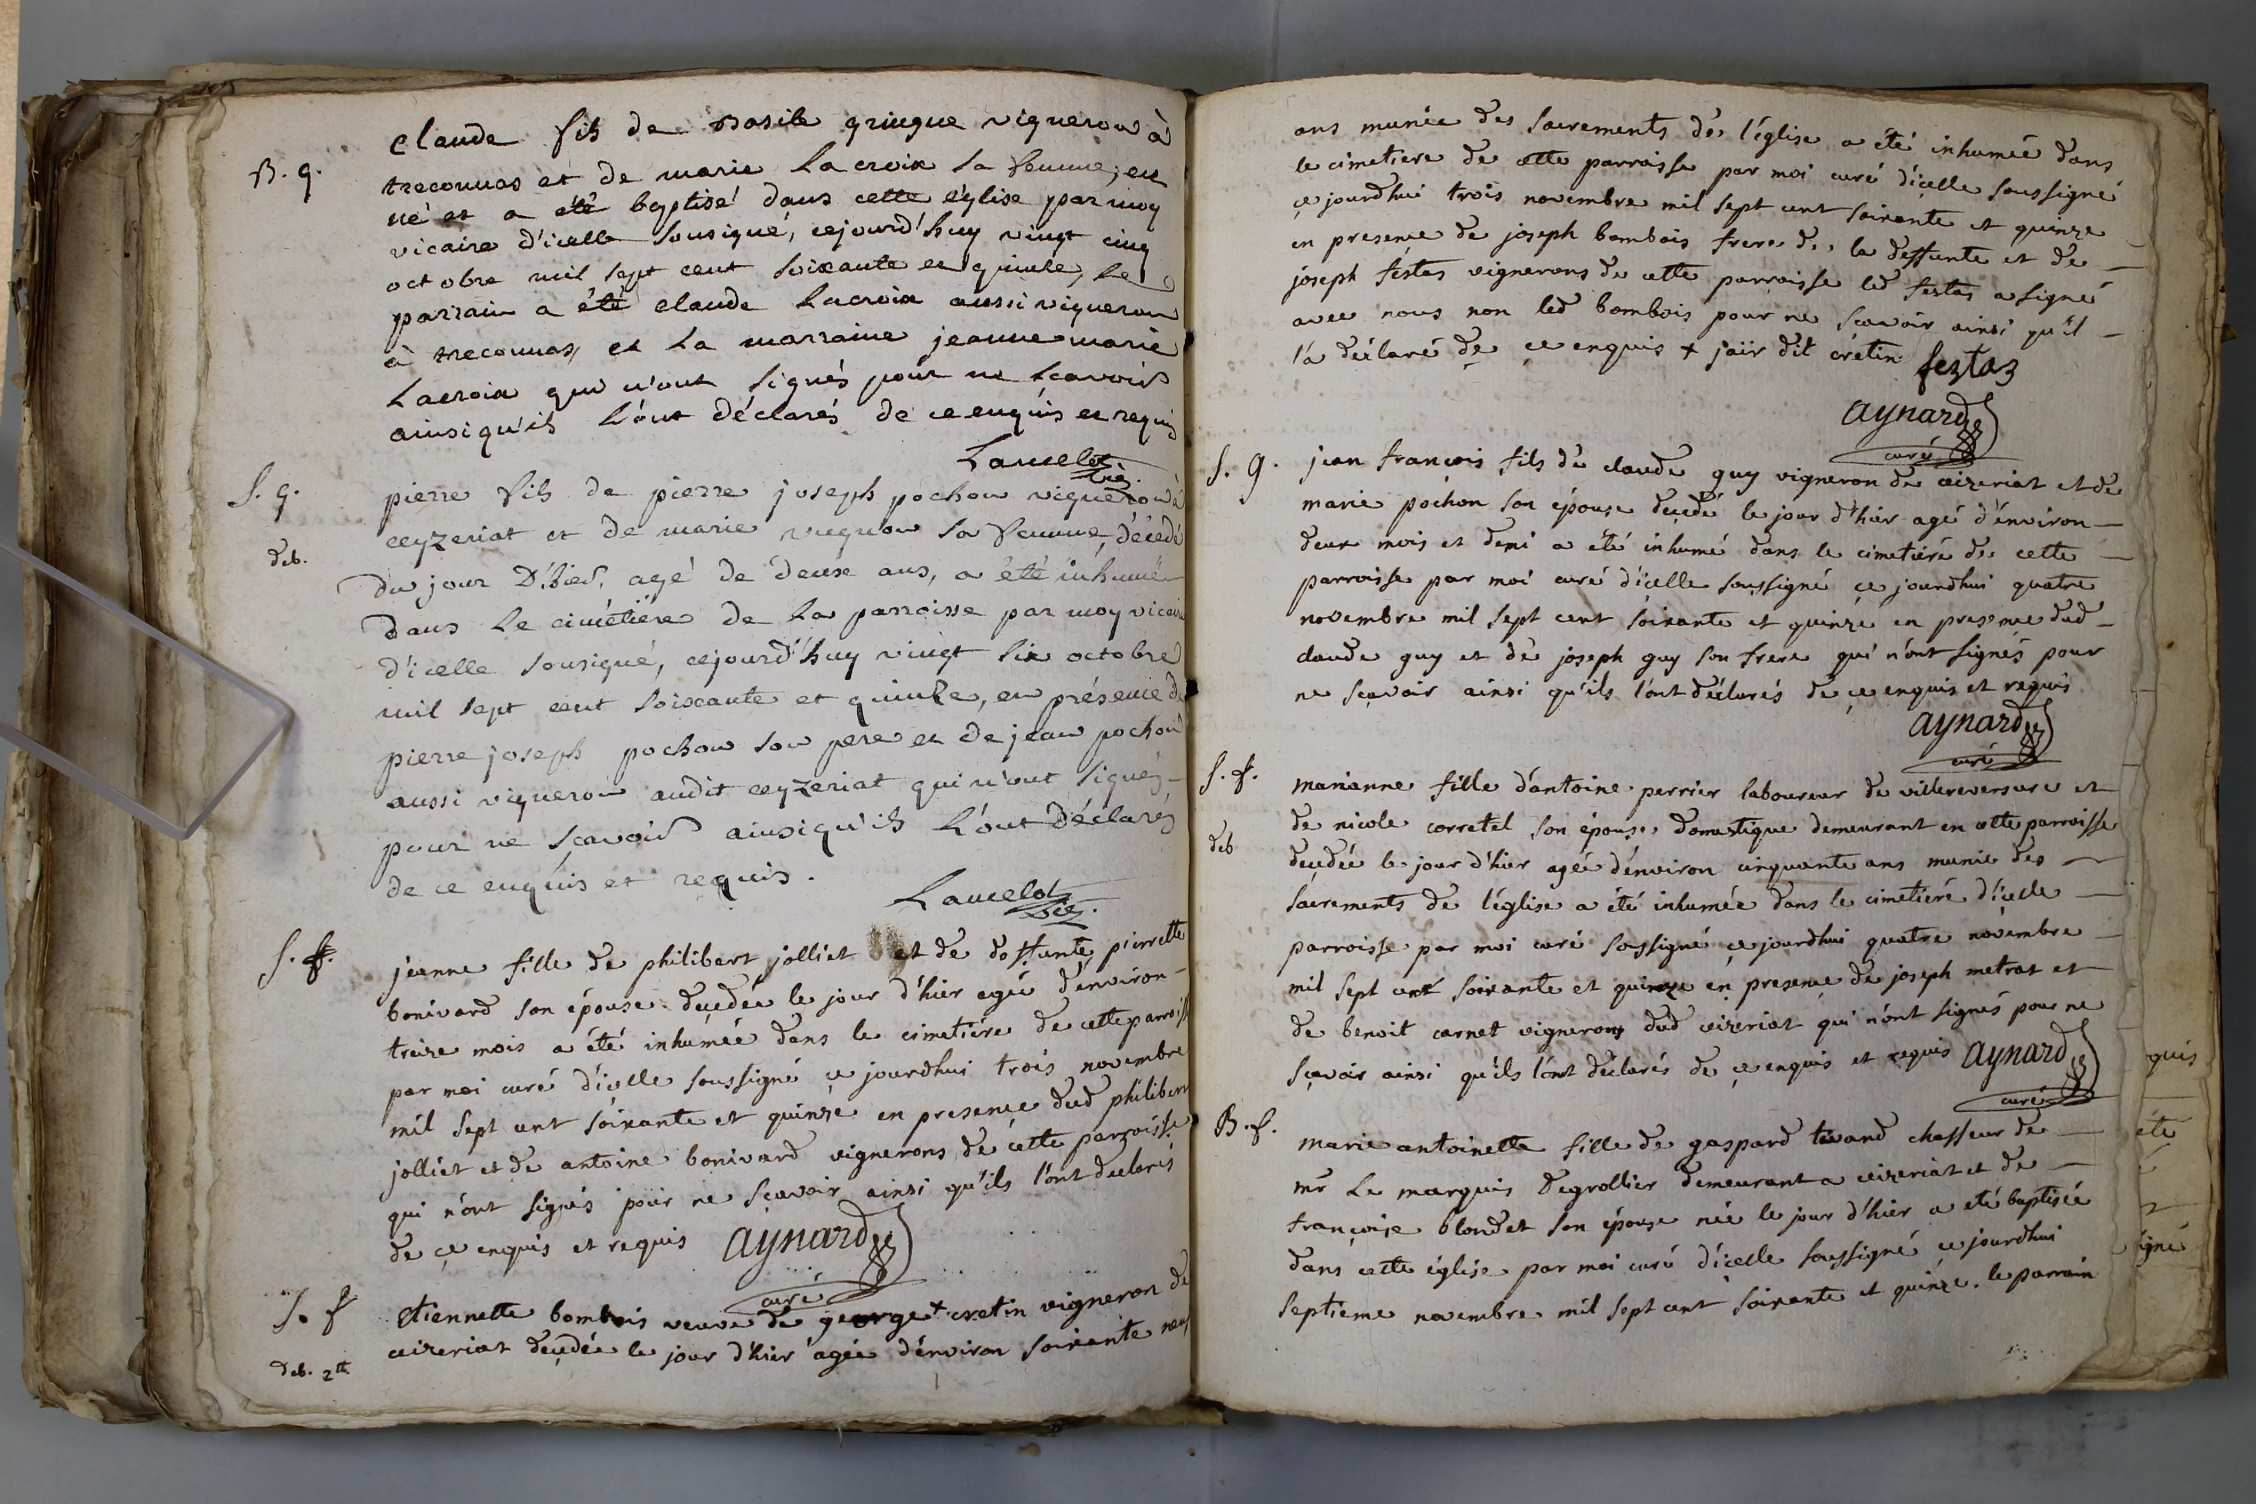 B. g.
claude fils de Basile gringue vigneron à
treconnas et de marie Lacroix sa femme, est
né et a été baptisé dans cette église par moy
vicaire d'icelle sousigné, cejourd'huy vingt cinq
octobre mil sept cent soixante et quinze, le
parrain a été claude Lacroix aussi vigneron
à treconnas, et la marraine jeanne marie
Lacroix qui n'ont signés pour ne sçavoir
ainsi qu'ils l'ont déclarés de ce enquis et requis
Lancelot
vic.
S. g.
deb.
pierre fils de pierre joseph pochon vigneron à
ceyzeriat et de marie sa femme, décédé
du jour d'hier, agé de deux ans, a été inhumé
dans le cimétière de la parroisse par moy vicaire
d'icelle sousigné, cejourd'huy vingt six octobre
mil sept cent soixante et quinze, en présence de
pierre joseph pochon son pere et de jean pochon
aussi vigneron audit ceyzeriat qui n'ont signés
pour ne sçavoir ainsi qu'ils l'ont déclarés
de ce enquis et requis.
Lancelot
vic.
S. f.
jeanne fille de philibert jolliet et de deffunte pierrette
bonivard son épouse decedée le jour d'hier agée d'environ
treize mois a été inhumée dans le cimetiére de cette parroisse
par moi curé d'icelle soussigné ce jourdhui trois novembre
mil sept cent soixante et quinze en presence dud philibert
jolliet et de antoine bonivard vignerons de cette parroisse
qui n'ont signés pour ne sçavoir ainsi qu'ils l'ont declarés
de ce enquis et requis aynard
curé
S. f
deb. 2tt
etiennette bombois veuve de george + cretin vigneron de
ceizeriat decedée le jour d'hier agée d'environ soixante neuf
ans munie des sacrements de l'église a été inhumée dans
le cimetiere de cette parroisse par moi curé d'icelle soussigné
ce jourdhui trois novembre mil sept cent soixante et quinze
en presence de joseph bombois frere de la deffunte et de
joseph festas vignerons de cette parroisse led festas a signé
avec nous non led bombois pour ne scavoir ainsi qu'il
l'a déclaré de ce enquis + jair dit crétin festaz
aynard
curé
S. g.
jean françois fils de claude guy vigneron de ceizeriat et de
marie pochon son épouse decedé le jour d'hier agé d'environ
deux mois et demi a été inhumé dans le cimetiére de cette
parroisse par moi curé d'icelle soussigné ce jourdhui quatre
novembre mil sept cent soixante et quinze en presence dud
claude guy et de joseph guy son frere qui n'ont signés pour
ne sçavoir ainsi qu'ils l'ont déclarés de ce enquis et requis
aynard
curé
S. f.
deb
marianne fille d'antoine perrier laboureur de villereversure et
de nicole corretel son épouse domestique demeurant en cette parroisse
decedée le jour d'hier agée d'environ cinquante ans munie des
sacrements de l'église a été inhumée dans le cimetiére d'icelle
parroisse par moi curé soussigné ce jourdhui quatre novembre
mil sept cent soixante et quinze en presence de joseph metrat et
de benoit carnet vignerons dud ceizeriat qui n'ont signés pour ne
sçavoir ainsi qu'ils l'ont déclarés de ce enquis et requis aynard
curé
B. f.
marie antoinette fille de gaspard tevard chasseur de
mr Le marquis Degrollier demeurant a ceizeriat et de
françoise blondet son épouse née le jour d'hier a eté baptisée
dans cette église par moi curé d'icelle soussigné ce jourdhui
septieme novembre mil sept cent soixante et quinze. le parrain
quis
été
igné